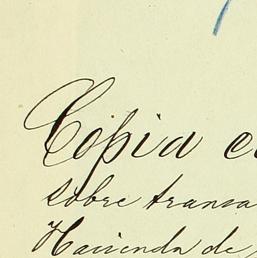 Copia c
sobre transa
Hacienda de